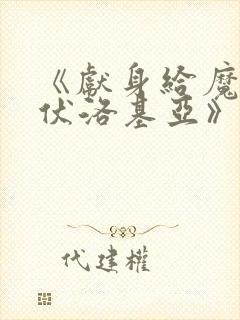 《獻身給魔
伏洛基亞》
代建權